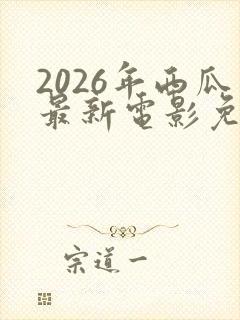 2026年西瓜
最新電影免
宗道一